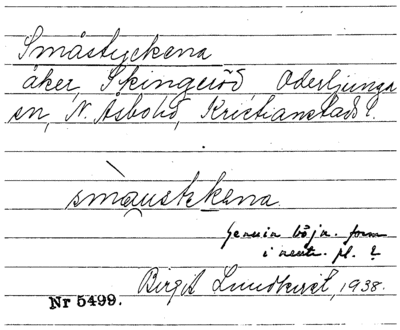 Småstyckena
åker, Skingeröd, Oderljunga
sn, N. Åsbohd, Kristianstads l.
smàustekena
Genuin böjn. form
i neutr. pl. ?
Birgit Lundkvist, 1938.
Nr 5499.